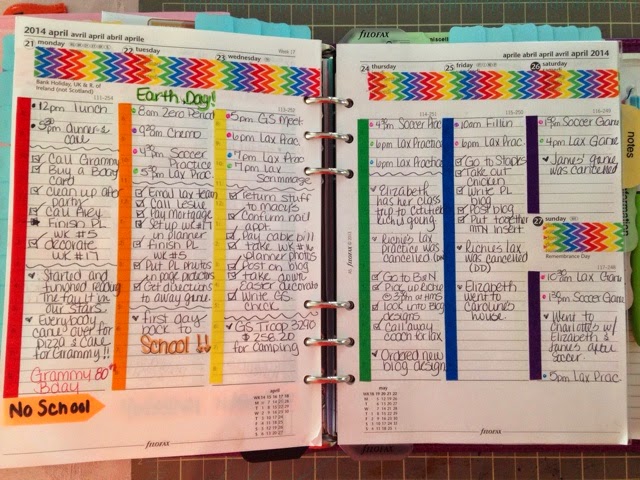 2014 april avril avril abril aprile
Week 17
21 monday
Bank Holiday, UK & R. of
Ireland (not Scotland)
111-254
12pm lunch
dinner &
cake
Call Grammy
Buy a Bday
Card
clean up after
party
Call Alley
Finish PL
WK #5
decorate
WK #17
Started and
finished reading
The Fault in
our Stars.
Everybody
came over for
pizza & cake
for Grammy!!
Grammy 80th
Bday
No School
22 tuesday
Earth Day!
8am Zero Period
Chemo
4:30 Soccer
Practice
Lax Prac
Email lax team
Call Leslie
Pay mortgage
set up WK #17
in planner
finish PL
WK #5
Put PL photos
in page protectors
Get directions
to away game
First day
back to
School!!
23 wednesday
113-252
5pm GS Meet
Lax Prac
Lax Prac
Lax
Scrimmage
return stuff
to Macy's
Confirm nail
appt.
Pay cable bill
take WK #16
planner photos
Post on blog
take down
easter decorations
Write GS
check
GS Troop $290
$258.20
for Camping
april
FILOFAX
FILOFAX
aprile abril april avril april 2014
24 thursday
114-251
Soccer Prac
6pm Lax Practice
6pm Lax Practice
Elizabeth
has her class
trip to
Richie going
Richie's lax
practice was
cancelled (DD)
Go to B&N
Pick up Richie
@ 3:30 at HMS
look into Blog
designs
Call away
coach for lax
Ordered new
blog design
25 friday
115-250
10am Fill in
Go to Staples
Take out
chicken
Write PL
blog
Post blog
Put together
MTN insert
Richie's lax
was cancelled
(DD)
Elizabeth
went to
Caroline's
house.
26 saturday
116-249
Soccer Game
4pm Lax Game
James' game
was cancelled
27 sunday
Remembrance Day
117-248
Lax Game
Soccer Game
Went to
Charlotte's w/
Elizabeth &
James after
Soccer.
5pm Lax Prac.
may
FILOFAX
notes